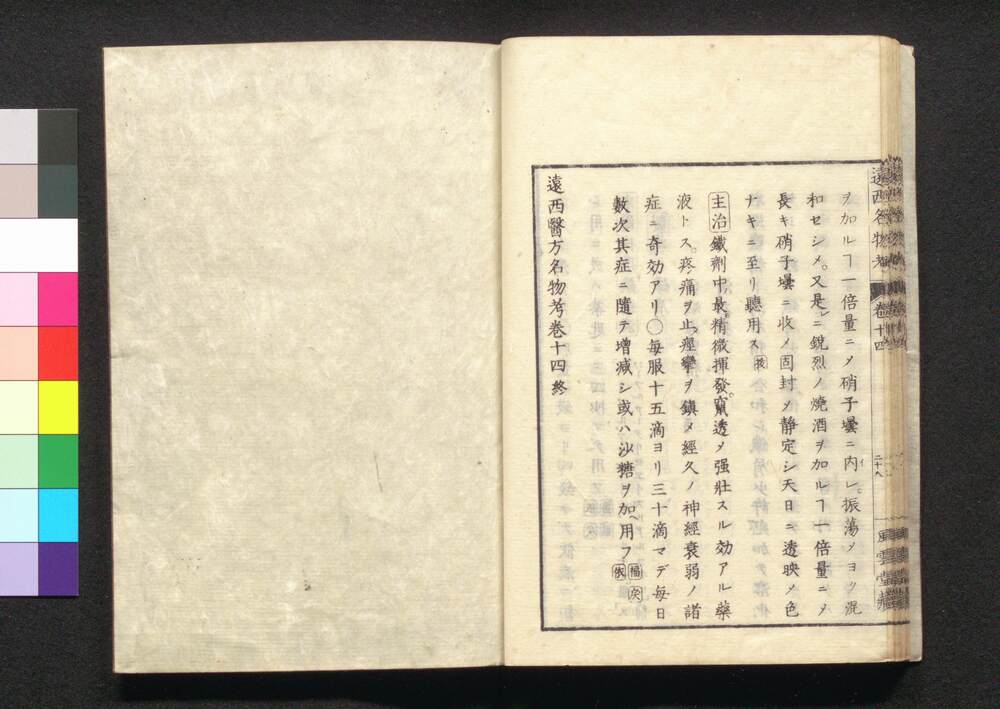 ヲ加ルヿ一倍量ニメ硝子壜ニ内レ。振蕩メヨク混
和セシメ。又是ニ鋭烈ノ焼酒ヲ加ルヿ一倍量ニメ
長キ硝子壜ニ收メ固封メ静定シ天日ニ透映メ色
ナキニ至リ聽用ス
主治 鐵劑中最精微揮發。竄透メ强壯スル効アル藥
液トス。疼痛ヲ止。痙攣ヲ鎮メ經久ノ神經衰弱ノ諸
症ニ奇効アリ〇毎服十五滴ヨリ三十滴マデ毎日
數次其症ニ隨テ増減シ或ハ沙糖ヲ加ヘ用フ
遠西醫方名物考卷十四終
遠西名物考
卷十四
二十八
風雲堂藏